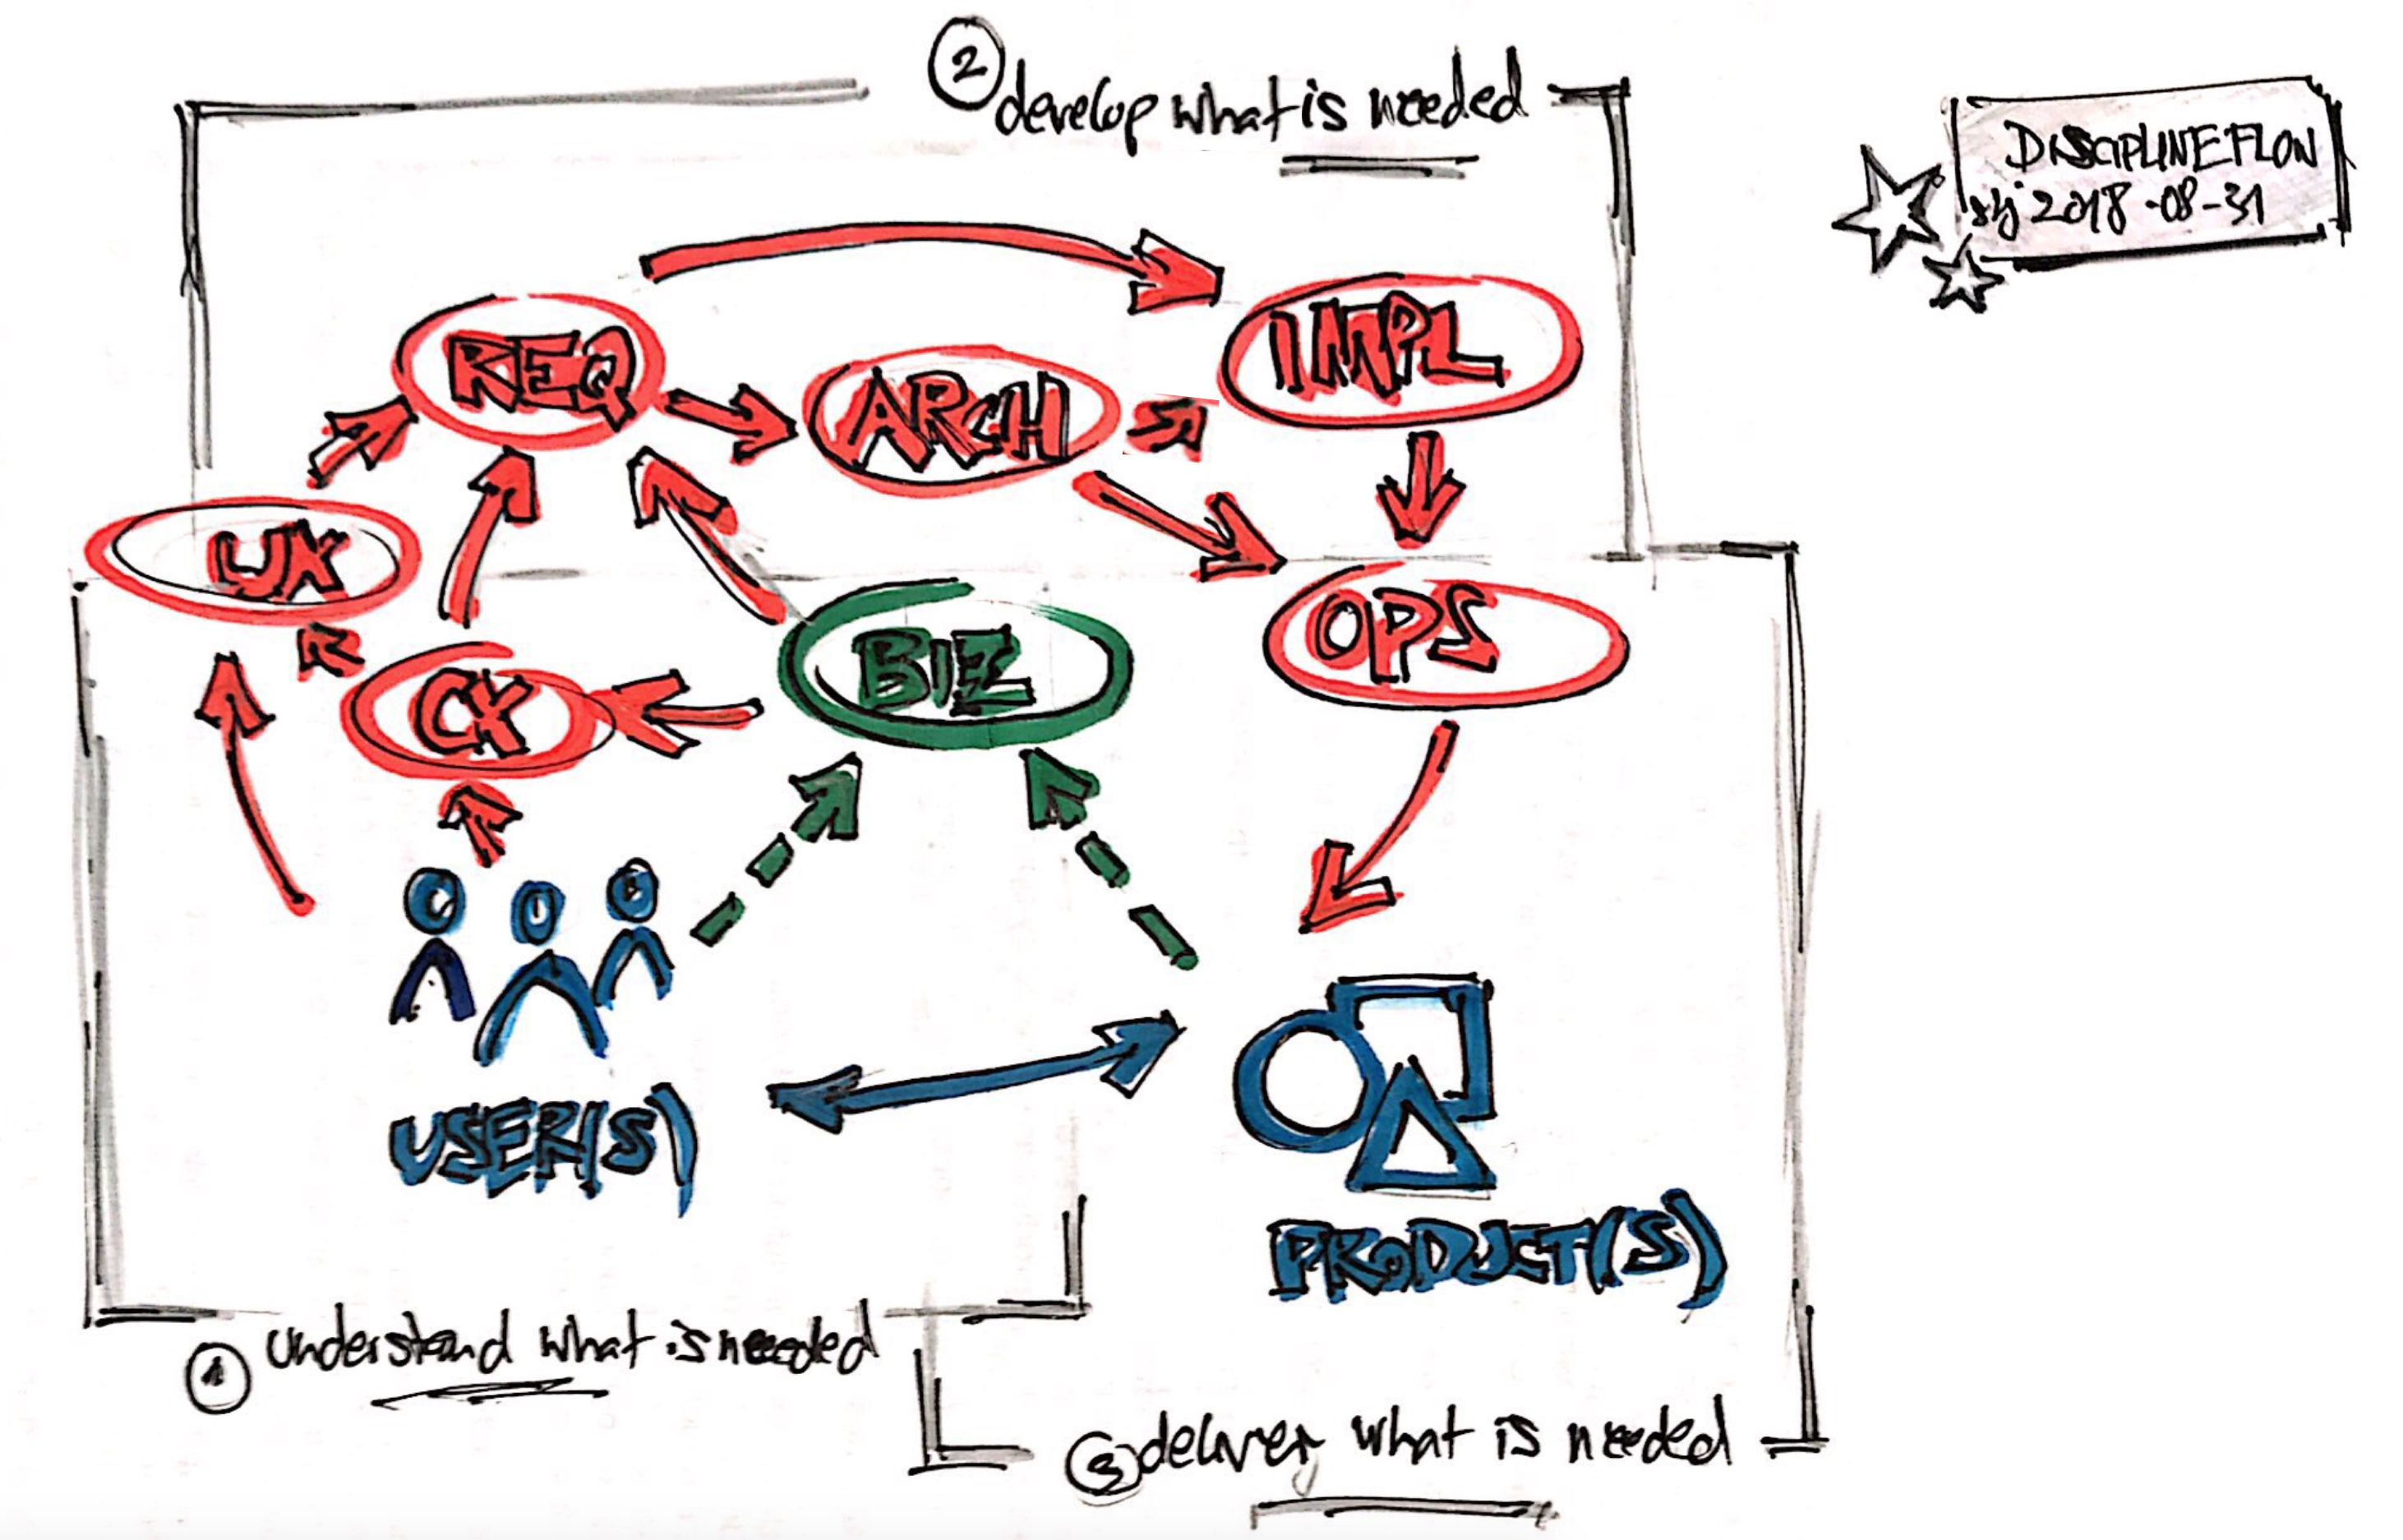 2 develop what is needed
DISCIPLINE FLOW
2018-08-31
REQ
IMPL
ARCH
UX
OPS
BIZ
CX
USER(S)
PRODUCT(S)
1 understand what is needed
3 deliver what is needed